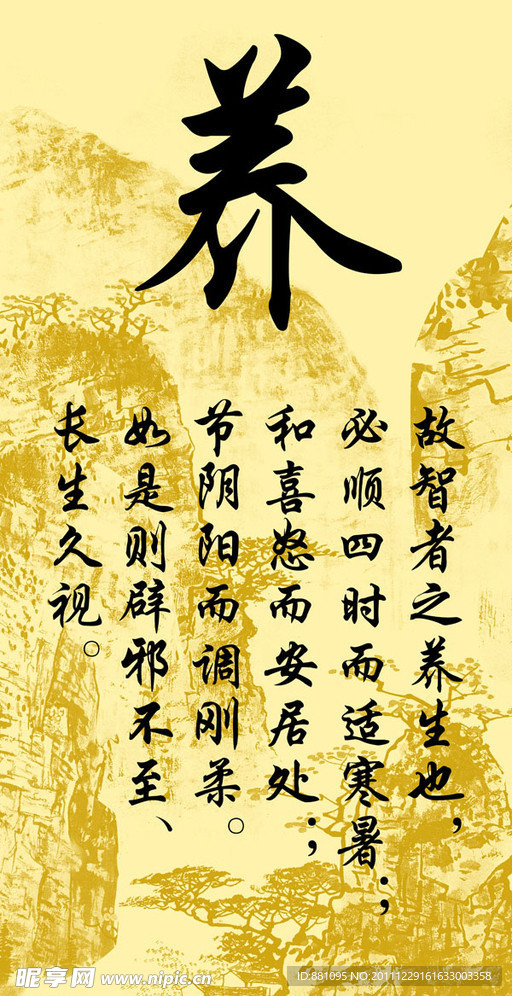 养
故智者之养生也，
必顺四时而适寒暑；
和喜怒而安居处；
节阴阳而调刚柔。
如是则辟邪不至、
长生久视。
昵享网 www.nipic.cn
ID:881095 NO.20111229161633003358